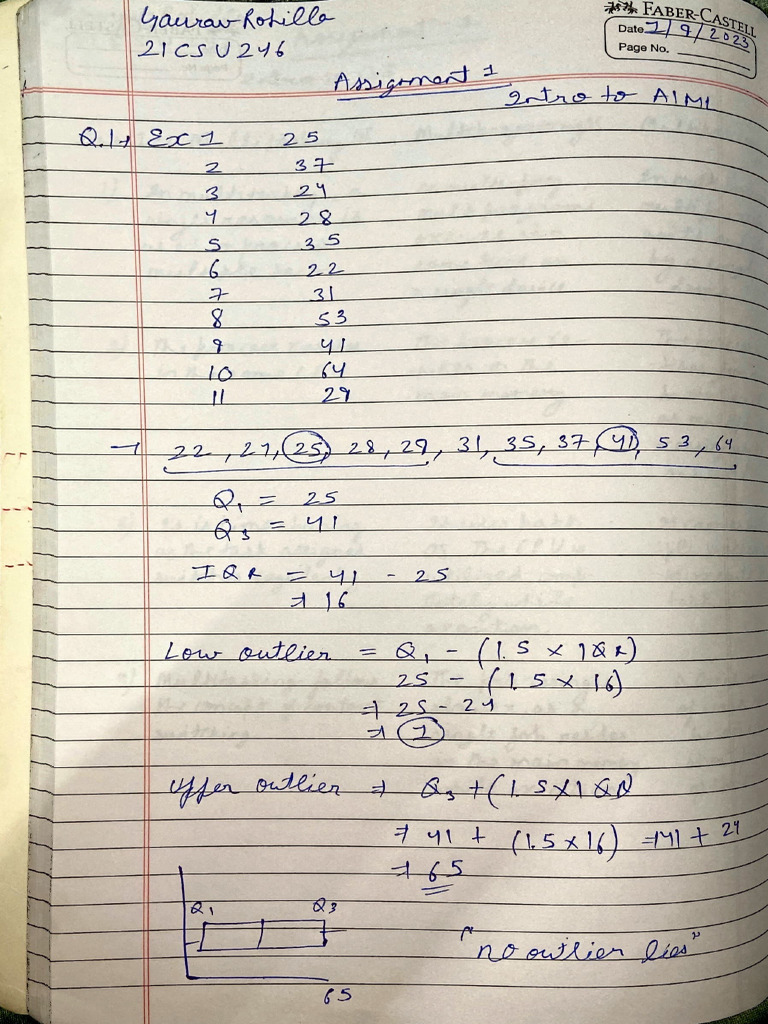 Gaurav Rohilla
21CSU246
FABER-CASTELL
Date 1/9/2023
Page No.
Assignment 1
Intro to AIML
Q.1→ Ex 1 25
2 37
3 24
4 28
5 35
6 22
7 31
8 53
9 41
10 64
11 29
→ 22, 24, 25, 28, 29, 31, 35, 37, 41, 53, 64
Q₁ = 25
Q₃ = 41
IQR = 41 - 25
⇒ 16
Low outlier = Q₁ - (1.5 × IQR)
25 - (1.5 × 16)
⇒ 25 - 24
⇒ 1
Upper outlier ⇒ Q₃ + (1.5 × IQR)
⇒ 41 + (1.5 × 16) ⇒ 41 + 24
⇒ 65
Q₁ Q3
"no outlier lies"
65